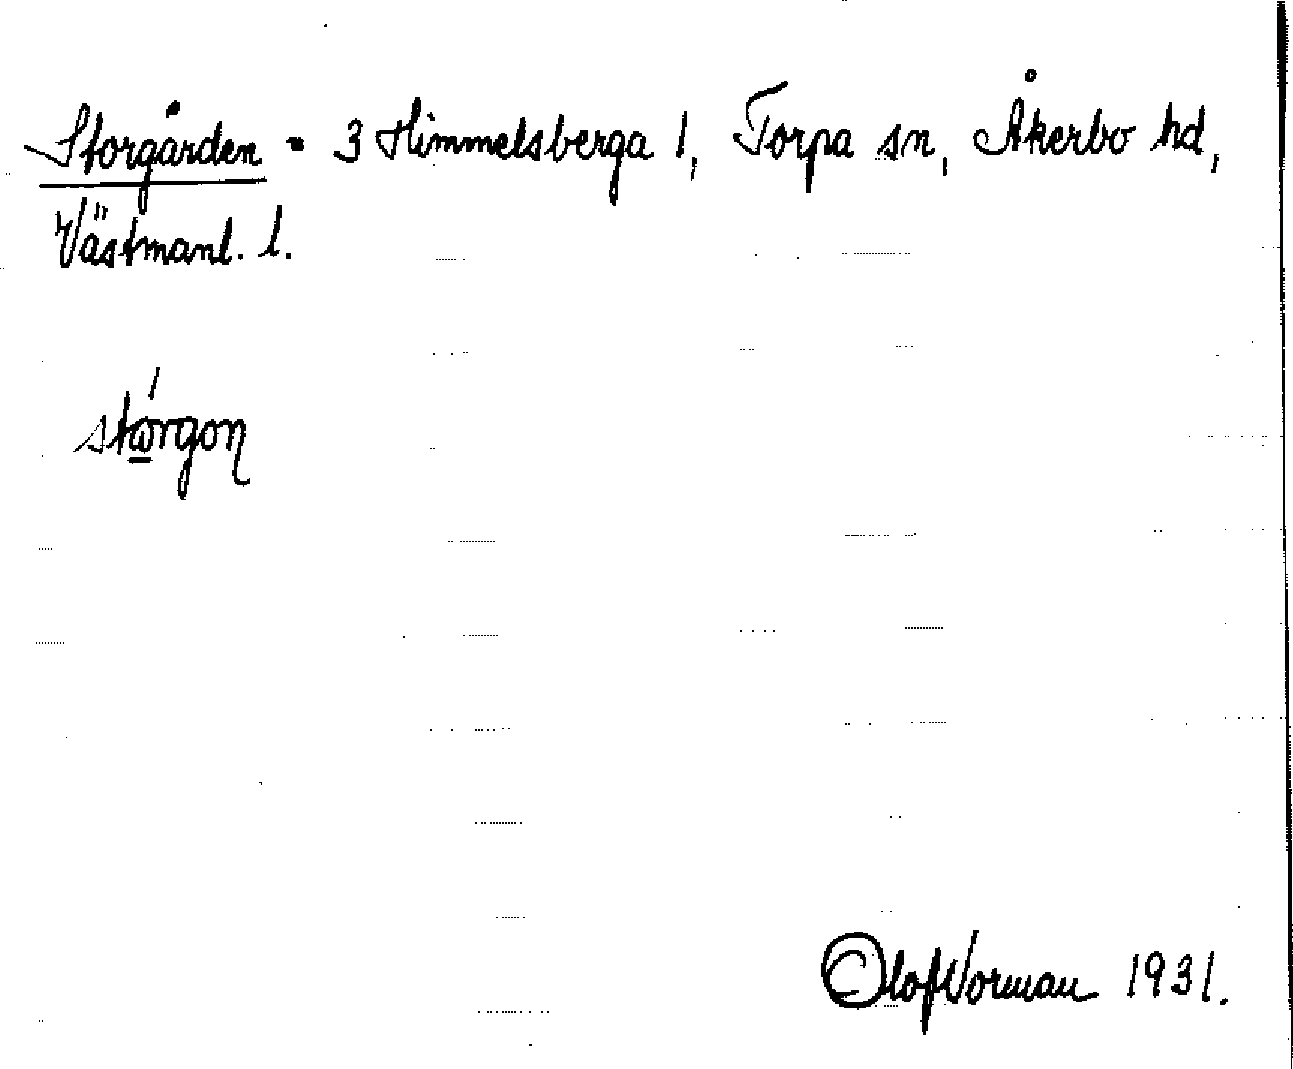 Storgården = 3 Himmelsberga 1, Torpa sn, Åkerbo hd,
Västmanl. l.
Olof Norman 1931.